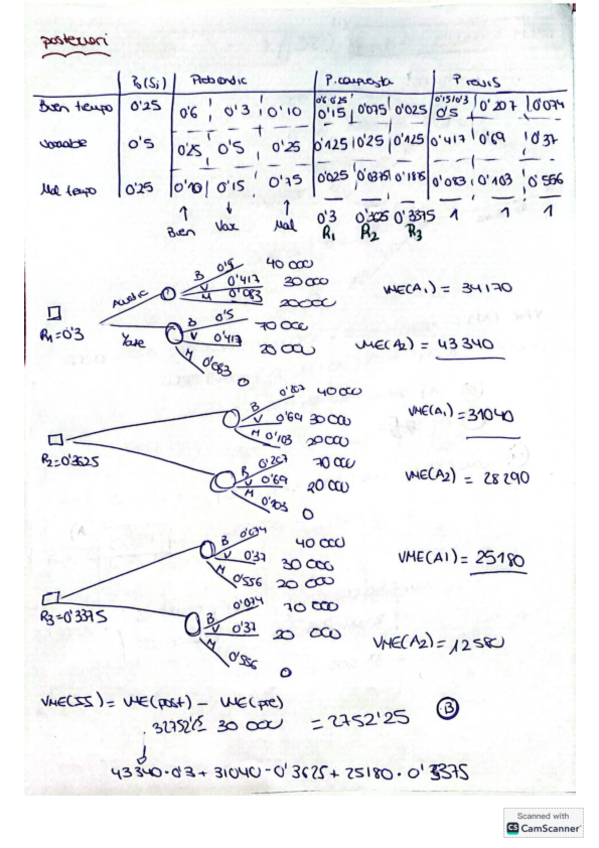 posteriori
P(Si) Probondic P. compuesta P revis
Buen tempo 0'25 0'6 0'3 0'10 0'6 0'25 0'15 0'075 0'025 0'15/0'3 0'5 0'207 0'074
Variable 0'5 0'25 0'5 0'25 0'125 0'25 0'125 0'417 0'69 0'37
Mal tempo 0'25 0'10 0'15 0'75 0'025 0'0375 0'1875 0'083 0'103 0'556
Buen Var Mal 0'3 0'3375 1 1 1
R1 R2 R3
B 0'5 40 000
V 0'417 30 000
M 0'083 20000
VME(A1) = 34170
R1=0'3
Yate
B 0'5 70 000
V 0'417 20 000
M 0'083 0
VME(A2) = 43 340
B 0'207 40 000
V 0'69 30 000
M 0'103 20 000
VME(A1) = 31040
R2=0'3625
B 0'207 70 000
V 0'69 20 000
M 0'103 0
VME(A2) = 28 290
B 0'074 40 000
V 0'37 30 000
M 0'556 20 000
VME(A1) = 25180
R3=0'3375
B 0'074 70 000
V 0'37 20 000
M 0'556 0
VME(A2) = 12580
VME(IS) = VME(post) - VME(pre)
32752'25 - 30 000 = 2752'25 B
43340·0'3 + 31040·0'3625 + 25180·0'3375
Scanned with
CS CamScanner